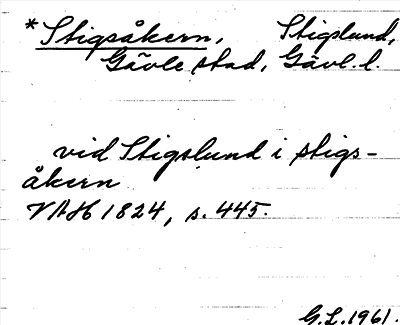 *Stigsåkern, Stigslund,
Gävle stad, Gävl. l.
vid Stigslund i stigs-
åkern
VAH 1824, s. 445.
G.L. 1961.